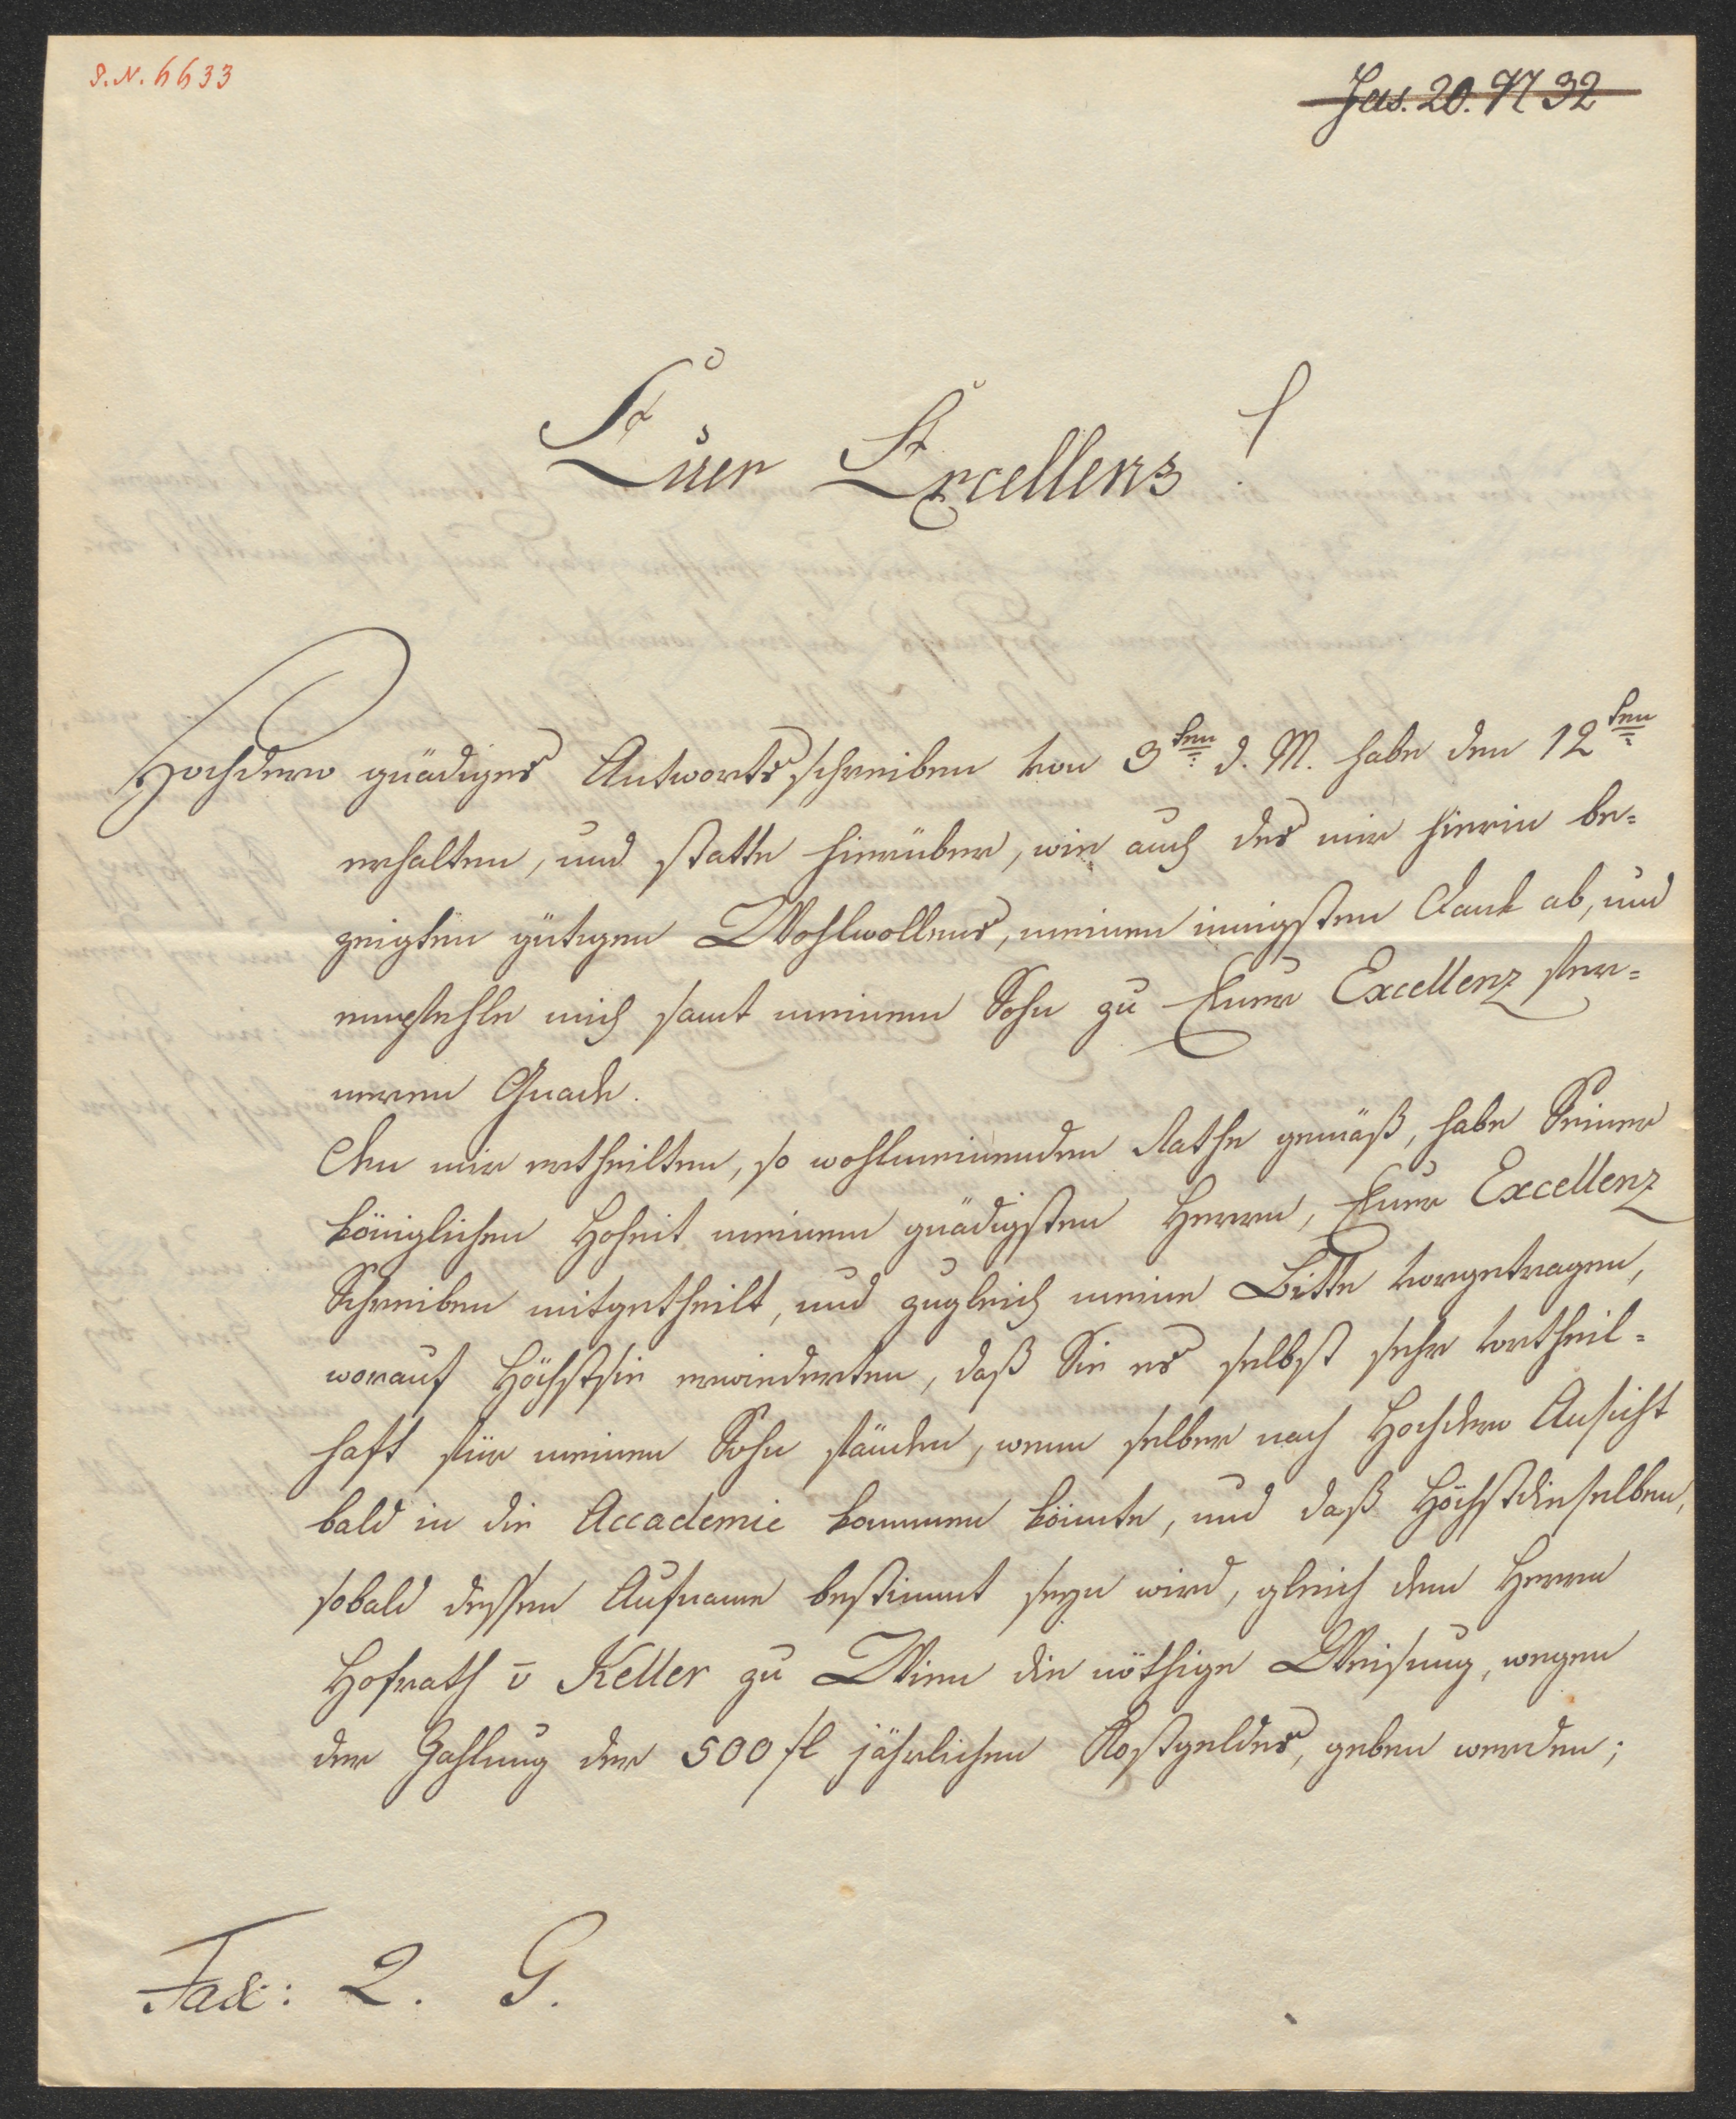 S.N. 6633
Fas. 20. N 32
Euer Excellenz!
Hochdero gnädiges Antwortsschreiben von 3ten d. M. habe den 12ten
erhalten, und statte hierüber, wie auch des mir hierin be=
zeigten gütigen Wohlwollens, meinen innigsten Dank ab, und
empfehle mich samt meinem Sohn zu Euer Excellenz fer=
neren Gnade.
Den mir ertheilten, so wohlmeinenden Rathe gemäß, habe Seiner
königlichen Hoheit meinem gnädigsten Herrn, Euer Excellenz
Schreiben mitgetheilt, und zugleich meine Bitte vorgetragen,
worauf Höchstsie erwiederten, daß Sie es selbst sehr vortheil=
haft für meinen Sohn fänden, wenn selber nach Hochdero Ansicht
bald in die Accademie kommen könnte, und daß Höchstdieselben,
sobald dessen Aufname bestimmt seyn wird, gleich dem Herrn
Hofrath v Keller zu Wien die nöthige Weisung, wegen
der Zahlung der 500 fl jährlichen Kostgeldes, geben werden;
Fasc: 2. G.